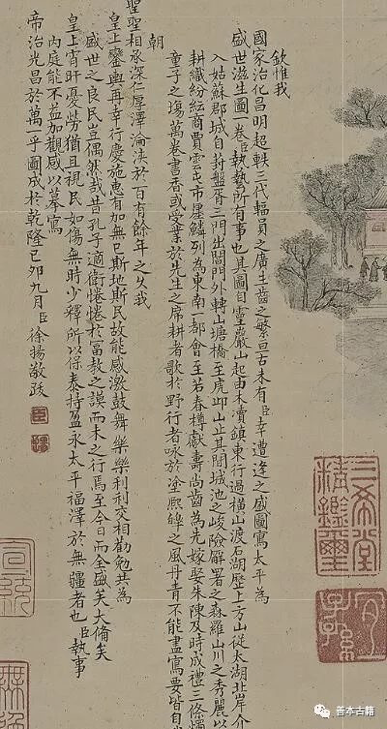 欽惟我
國家治化昌明超軼三代輻員之廣生齒之繁亘古未有臣幸遭逢之盛圖寫太平為
盛世滋生圖一卷臣執藝所有事也其圖自靈巖山起由木瀆鎮東行過橫山渡石湖歷上方山從太湖北岸介
入姑蘇郡城自葑盤胥三門出閶門外轉山塘橋至虎邱山止其間城池之峻險廨署之森羅山川之秀麗以
耕織紛紜商賈雲屯市廛鱗列為東南一都會至若春樽獻壽尚齒為先嫁娶朱陳及時成禮三條燭
童子之塲萬卷書香或受業於先生之席耕者歌於野行者咏於塗熙皞之風丹青不能盡寫要皆自
朝
聖聖相承深仁厚澤淪浹於百有餘年之久我
皇上鑾輿再幸行慶施惠有加無已斯地斯民故能感激鼓舞樂樂利利交相勸勉共為
盛世之良民豈偶然哉昔孔子適衛惓惓於富教之謨而未之行焉至今日而全盛矣大備矣
皇上宵旰憂勞猶且視民如傷無時少釋所以保泰持盈永太平福澤於無疆者也臣執事
內庭能不益加觀感以摹寫
帝治光昌於萬一乎圖成於乾隆己卯九月臣徐揚敬跋
三希堂精鑑璽
宜子孫
宣統
善本古籍